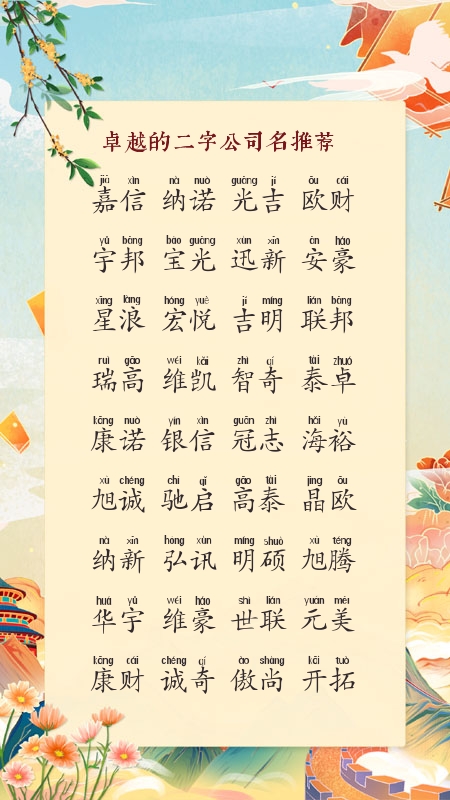 卓越的二字公司名推荐
jiā xìn nà nuò guāng jí ōu cái
嘉信 纳诺 光吉 欧财
yǔ bāng bǎo guāng xùn xīn ān háo
宇邦 宝光 迅新 安豪
xīng làng hóng yuè jí míng lián bāng
星浪 宏悦 吉明 联邦
ruì gāo wéi kǎi zhì qí tài zhuó
瑞高 维凯 智奇 泰卓
kāng nuò yín xìn guān zhì hǎi yù
康诺 银信 冠志 海裕
xù chéng chí qǐ gāo tài jīng ōu
旭诚 驰启 高泰 晶欧
nà xīn hóng xùn míng shuò xù téng
纳新 弘讯 明硕 旭腾
huá yǔ wéi háo shì lián yuán měi
华宇 维豪 世联 元美
kāng cái chéng qí ào shàng kāi tuò
康财 诚奇 傲尚 开拓